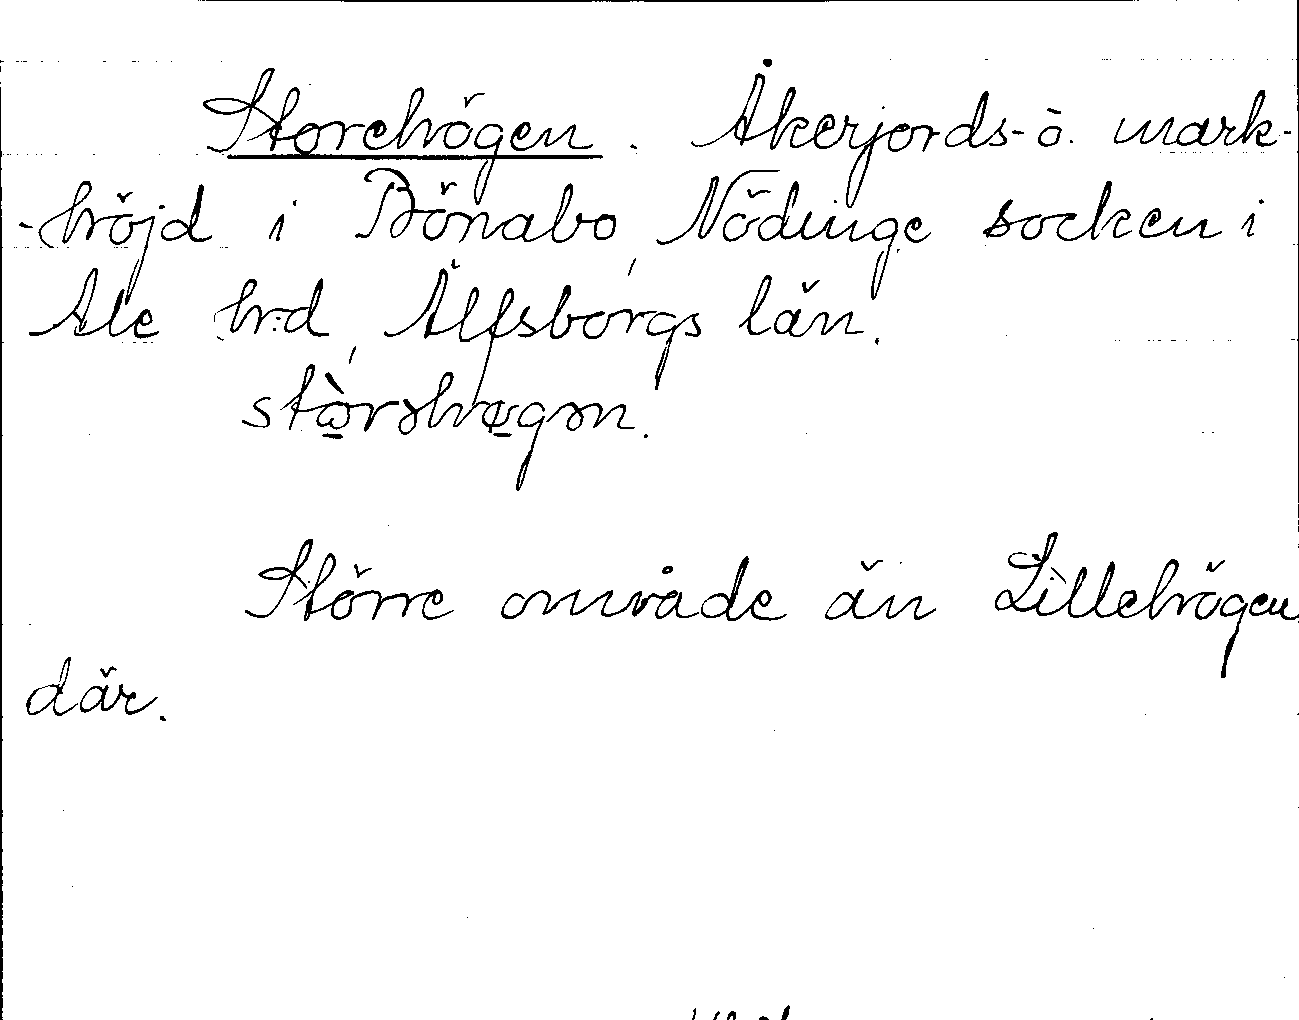 Storehögen. Åkerjords- o. mark-
-höjd i Bönabo, Nödinge socken i
Ale hrd, Älfsborgs län.
stὼ̲rəhφ̲gən.
Större område än Lillehögen
där.